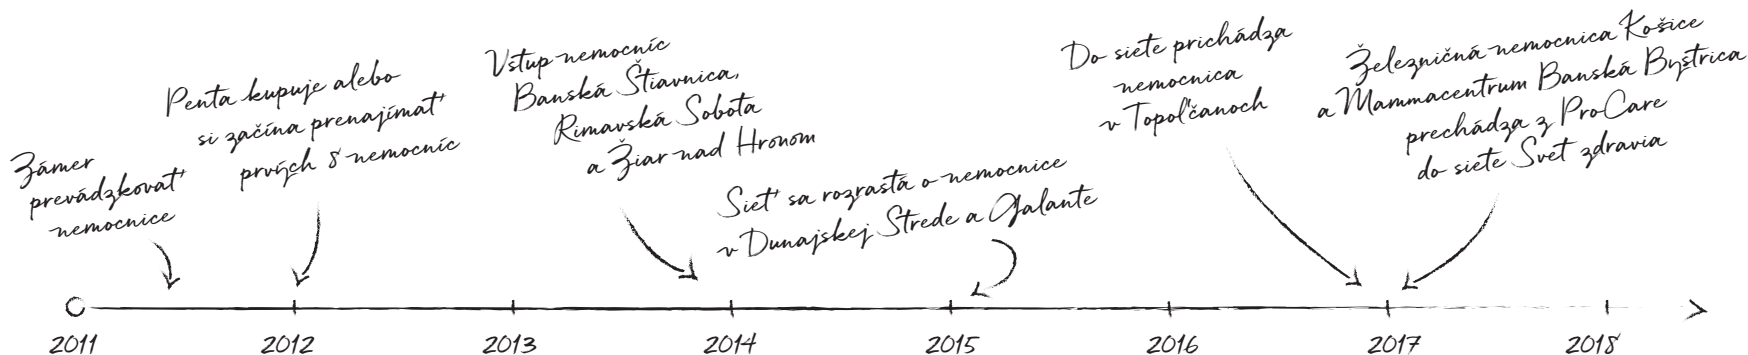 Zámer
prevádzkovať
nemocnice
Penta kupuje alebo
si začína prenajímať
prvých 8 nemocníc
Vstup nemocníc
Banská Štiavnica,
Rimavská Sobota
a Žiar nad Hronom
Sieť sa rozrastá o nemocnice
v Dunajskej Strede a Galante
Do siete prichádza
nemocnica
v Topoľčanoch
Železničná nemocnica Košice
a Mammacentrum Banská Bystrica
prechádza z ProCare
do siete Svet zdravia
2011 2012 2013 2014 2015 2016 2017 2018